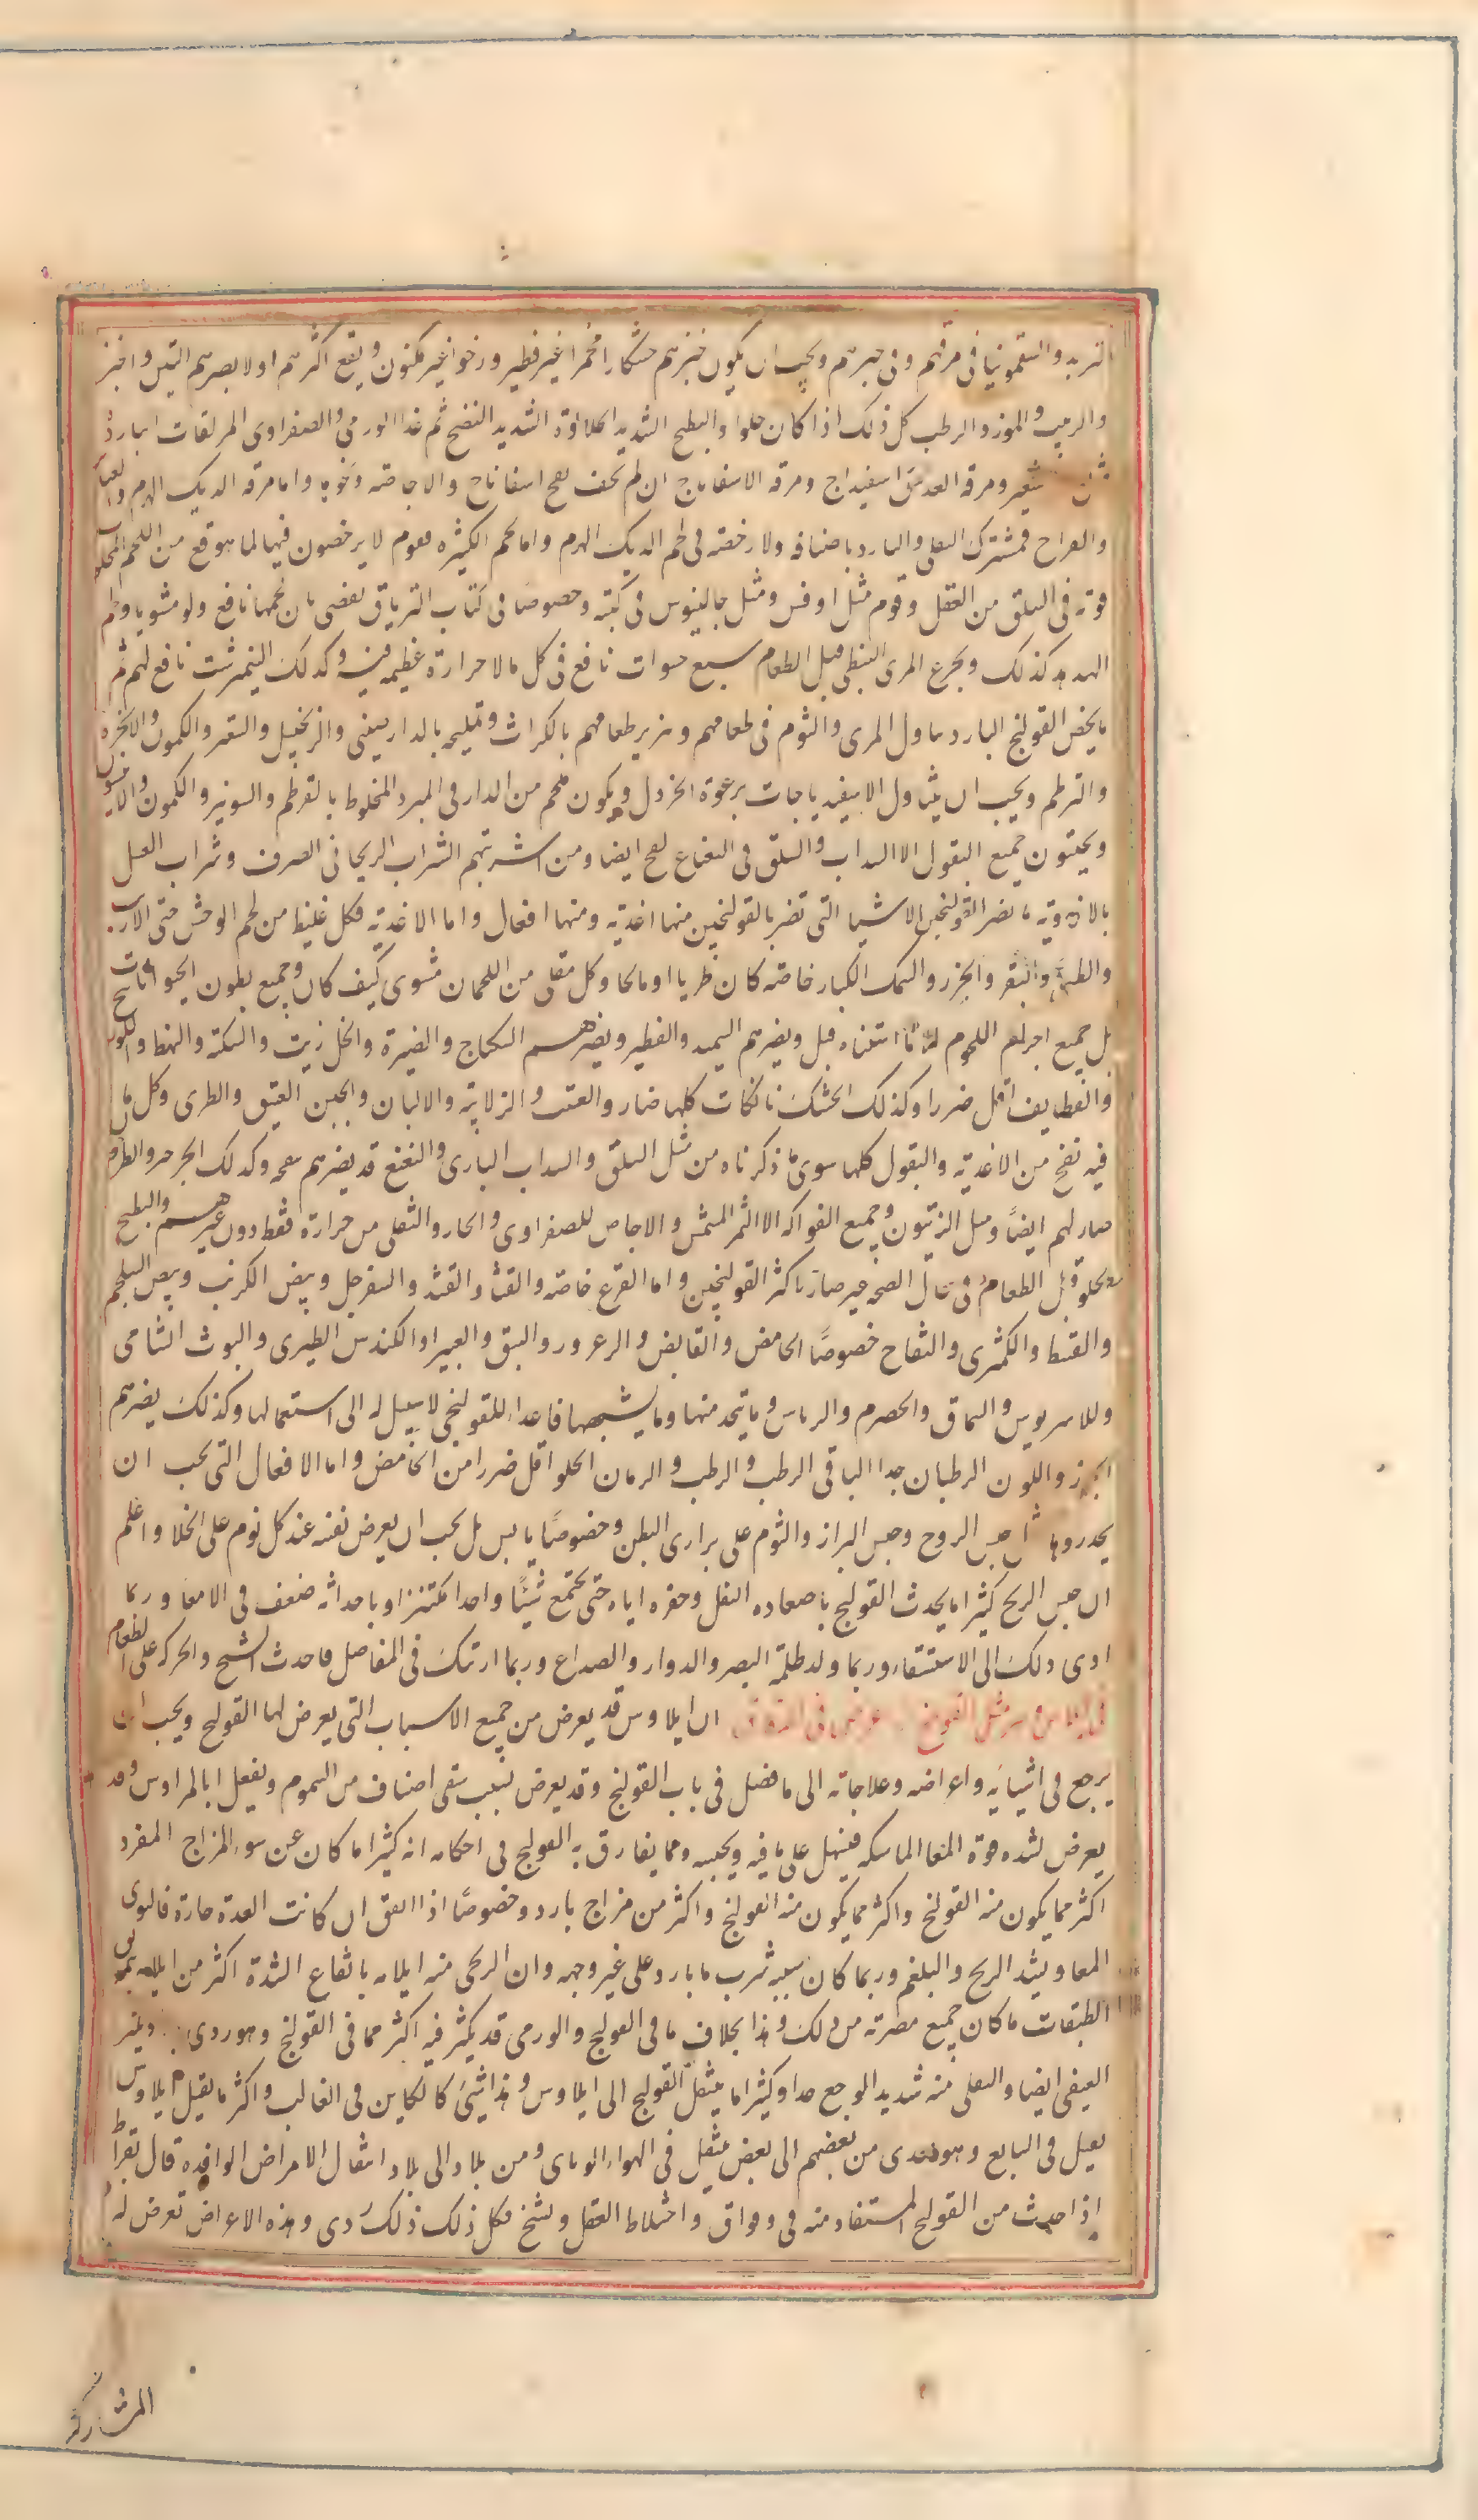 التربد والسقمونيا فى مرقهم وفى خبزهم ويجب ان يكون خبزهم خشكارا مخمرا غير فطير ورخوا غير مكنوز ويقع اكثرهم اولا يضرهم التين واخبز
والزبيب والموز والرطب كل ذلك اذا كان حلوا والبطيخ الشديد الحلاوة الشديد النضج ثم غذا الورمى والصفراوى المزلقات الباردة
شعير ومرقة العدس اسفيداج ومرقة الاسفاناج ان لم يخف نفخ اسفاناج والاجاصية ونحوها واما مرقة الديك الهرم
والفراخ فمشترك الثفلى والبارد باصنافه ولا رخصة فى لحم الديك الهرم واما لحم القوم لا يرخصون فيها لما هو قع من اللحم
قوته فى السلق من الثفل وقوم مثل اوفس ومثل جالينوس فى كتبه وخصوصا فى كتاب الترياق يقضى بان لحمها نافع ولو مشويا ولحم
الهدهد كذلك وتجرع المرى النبطى قبل الطعام سبع حسوات نافع فى كل ما لا حرارة عظيمة فيه وكذلك النيمرشت نافع لهم ثم
ما يخص القولنج البارد تناول المرى والثوم فى طعامهم وتبزير طعامهم بالكراث وتمليحه بالدارصينى والزنجبيل والسعتر والكمون والانجره
والقرطم ويجب ان يتناول الاسفيدباجات برغوة الخردل ويكون ملحهم من الدارفى المبزر المخلوط بالقرطم والشونيز والكمون والانيسون
ويجتنبون جميع البقول الا السداب والسلق فى النعناع نفخ ايضا ومن اشربتهم الشراب الريحانى الصرف وشراب العسل
بالافاويه ما يضر القولنجى الاشيا التى تضر بالقولنجين منها اغذية ومنها افعال واما الاغذية فكل غليظ من لحم الوحش حتى الارنب
والظبى والبقر والجزر والسمك الكبار خاصة كان طريا او مالحا وكل مقلى من اللحمان مشوى كيف كان وجميع بطون الحيوانات
بل جميع اجرام اللحوم الا ما استثناه قبل ويضرهم السميد والفطير ويضرهم السكباج والمضيرة والخل زيت والسكنه والهط واللون
والقطايف اقل ضررا وكذلك الخشك نانكات كلها ضار والفتيت والزلابية والالبان والجبن العتيق والطرى وكل ما
فيه نفخ من الاغذية والبقول كلها سوى ما ذكرناه من مثل السلق والسداب البارى والنعنع قد يضرهم نفخه وكذلك الجرجير والطرخون
ضار لهم ايضاً ومثل الزيتون وجميع الفواكه الا الثمر المشمش والاجاص للصفراوى والحار والثفلى من حرارة فقط دون غيرهم والبطيخ
الحلو قبل الطعام فى حال الصحة غير ضار باكثر القولنجين واما القرع خاصة والقثا والقثد والسفرجل وبيض الكرنب وبيض السلجم
والقنبيط والكمثرى والتفاح خصوصاً الحامض والقابض والزعرور والنبق والغبيرا والكندس الطبرى والتوت الشامى
والامبرباريس والسماق والحصرم والريباس وما يتخذ منها وما يشبهها فاعداء للقولنجى لا سبيل له الى استعمالها وكذلك يضرهم
الجوز واللوز الرطبان جدا الباقى الرطب والرطب والرمان الحلو اقل ضررا من الحامض واما الافعال التى يجب ان
يحذروها مثل حبس الريح وحبس البراز والنوم على براز فى البطن وخصوصاً يابس بل يجب ان يعرض نفسه عند كل نوم على الخلا واعلم
ان حبس الريح كثيرا ما يحدث القولنج باصعاده الثفل وحفزه اياه حتى يجتمع شيئاً واحدا مكتنزا وباحداثه ضعف فى الامعا وربما
ادى ذلك الى الاستسقاء وربما ولد ظلمة البصر والدوار والصداع وربما ارتبك فى المفاصل فاحدث التشنج والحركة على الطعام
ان ايلاوس قد يعرض من جميع الاسباب التى يعرض لها القولنج ويجب ان
يرجع فى اسبابه واعراضه وعلاجاته الى ما فصل فى باب القولنج وقد يعرض بسبب سقى اصناف من السموم ويفعل ايلاوس وقد
يعرض لشدة قوة المعا الماسكه فيشتمل على ما فيه ويحبسه ومما يفارق به القولنج فى احكامه انه كثيرا ما كان عن سوء المزاج المفرد
اكثر مما يكون منه القولنج واكثر مما يكون منه القولنج واكثر من مزاج بارد وخصوصاً اذا اتفق ان كانت المعدة حارة فالتوى
المعا ويشد الريح والبلغم وربما كان سببه شرب ما بارد على غير وجهه وان الريحى منه ايلامه بايقاع الشدة اكثر من ايلامه
الطبقات ما كان جميع مضرته من ذلك وهذا بخلاف ما فى القولنج والورمى قد يكثر فيه اكثر مما فى القولنج وهو ردى
ايضا والثفلى منه شديد الوجع جدا وكثيرا ما ينتقل القولنج الى ايلاوس وهذا شئ كالكاين فى الغالب واكثر ما يقتل ايلاوس
يقتل فى السابع وهو يعدى من بعضهم الى بعض ينتقل فى الهواء الوبائى ومن بلاد الى بلاد انتقال الامراض الوافدة قال بقراط
اذا حدث من القولنج المستعاذ منه قى وفواق واختلاط العقل وتشنج فكل ذلك ذلك ردى وهذه الاعراض تعرض له
المشاركة